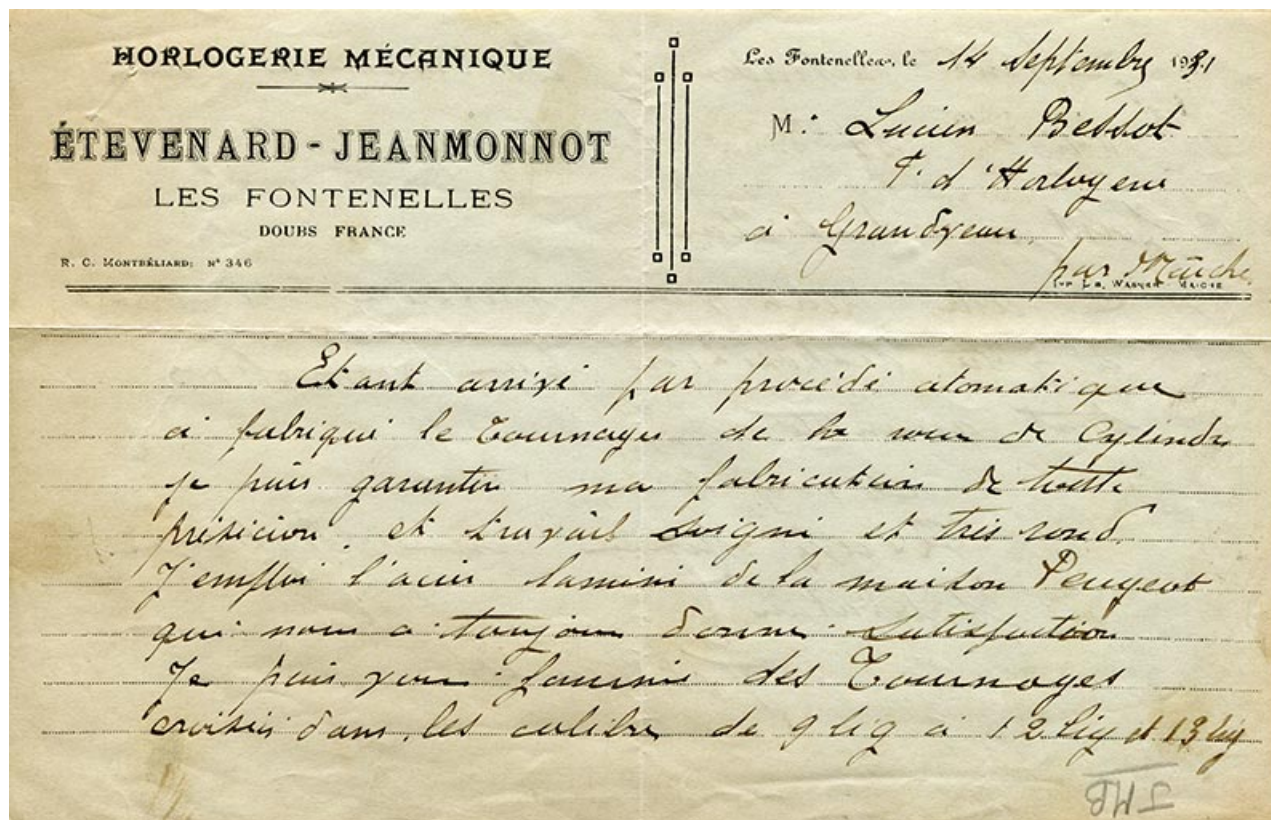 HORLOGERIE MÉCANIQUE
ÉTEVENARD - JEANMONNOT
LES FONTENELLES
DOUBS FRANCE
R. C. MONTBÉLIARD: N° 346
Les Fontenelles, le 14 Septembre 1931
M. Lucien Bessot
F. d'Horlogerie
à Grandjean
par Maîche
IMP. WASNER MAICHE
Etant arrivé par procédé atomatique
à fabriqué le Tournages de la roue de Cylindre
je puis garantir ma fabrication de toutte
présicion, et travail soigné et très rond.
J'emploi l'acier laminé de la maison Peugeot
qui nous a toujours donné satisfaction
Je puis vous fournir des Tournages
croisés dans les calibre de 9 lig à 12 lig et 13 lig
JMB